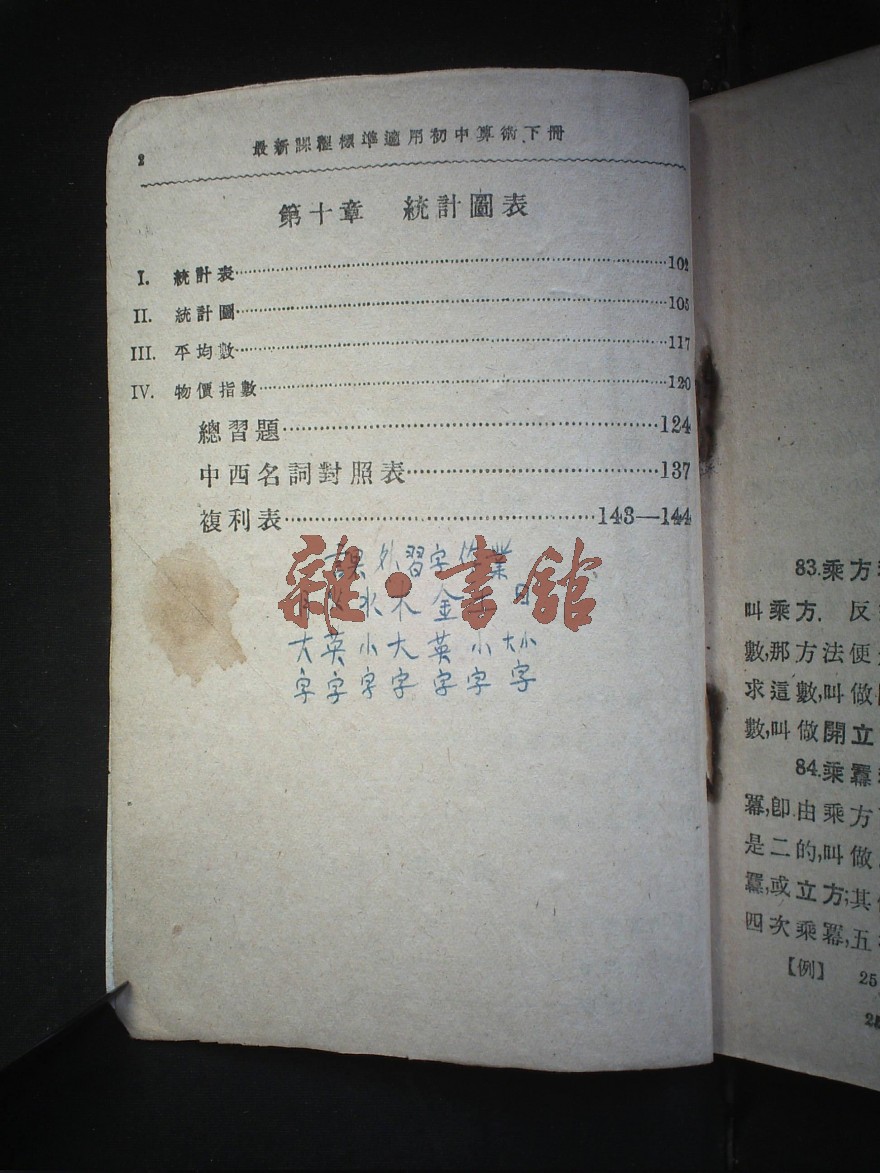 2
最新課程標準適用初中算術下冊
第十章 統計圖表
I. 統計表……102
II. 統計圖……105
III. 平均數……117
IV. 物價指數……120
總習題……124
中西名詞對照表……137
複利表……143—144
課外習字作業
水木金 日
大英小大英小大小
字字字字字字字
雜·書館
83.乘方
叫乘方. 反
數,那方法便
求這數,叫做
數,叫做開立
84.乘羃
羃,即由乘方
是二的,叫做
羃,或立方;其
四次乘羃,五
【例】 25
25